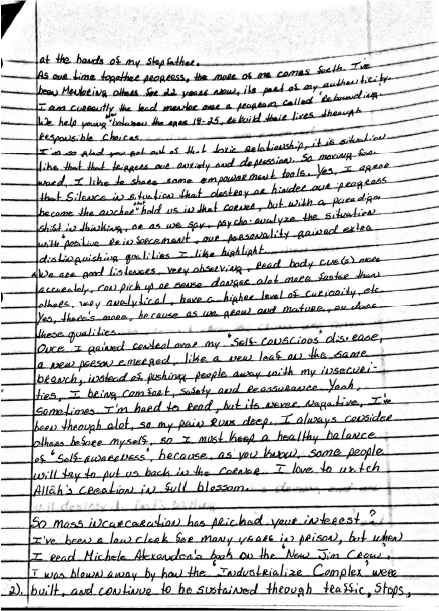 at the hands of my Stepfather.
As our time together progress, the more of me comes forth. I've
been Mentoring others for 22 years now, its part of my authenticity.
I am currently the lead mentor over a program called "Rebounding".
We help young between the ages 18-25, rebuild their lives through
responsible choices.
I'm so glad you got out of that toxic relationship, it is situation
like that that triggers our anxiety and depression. So moving for-
ward, I like to share some empowerment tools. Yes, I agree
that Silence in situation that destroy or hinder our progress
become the anchor that hold us in that corner, but with a paradigm
shift in thinking, or as we say, psycho-analyze the situation
with "positive reinforcement", our personality gained extra
distinguishing qualities I like highlight.
We are good listeners, very observing, read body cue(s) more
accurately, can pick up or sense danger alot more faster than
others, very analytical, have a higher level of curiosity, etc.
Yes, there's more, because as we grow and mature, so does
these qualities.
Once I gained control over my "Self-Conscious" dis-ease,
a new person emerged, like a new leaf on the same
branch, instead of pushing people away with my insecuri-
ties, I bring comfort, safety and reassurance. Yeah,
sometimes I'm hard to read, but its never negative, I've
been through alot, so my pain runs deep. I always consider
others before myself, so I must keep a healthy balance
of "Self-awareness", because, as you know, some people
will try to put us back in the corner. I love to watch
Allah's creation in full blossom.
So mass incarceration has pricked your interest?
I've been a law clerk for many years in prison, but when
I read Michele Alexandra's book on the "New Jim Crow,
I was blown away by how the "Industrialize Complex" were
2). built, and continue to be sustained through traffic, stops,